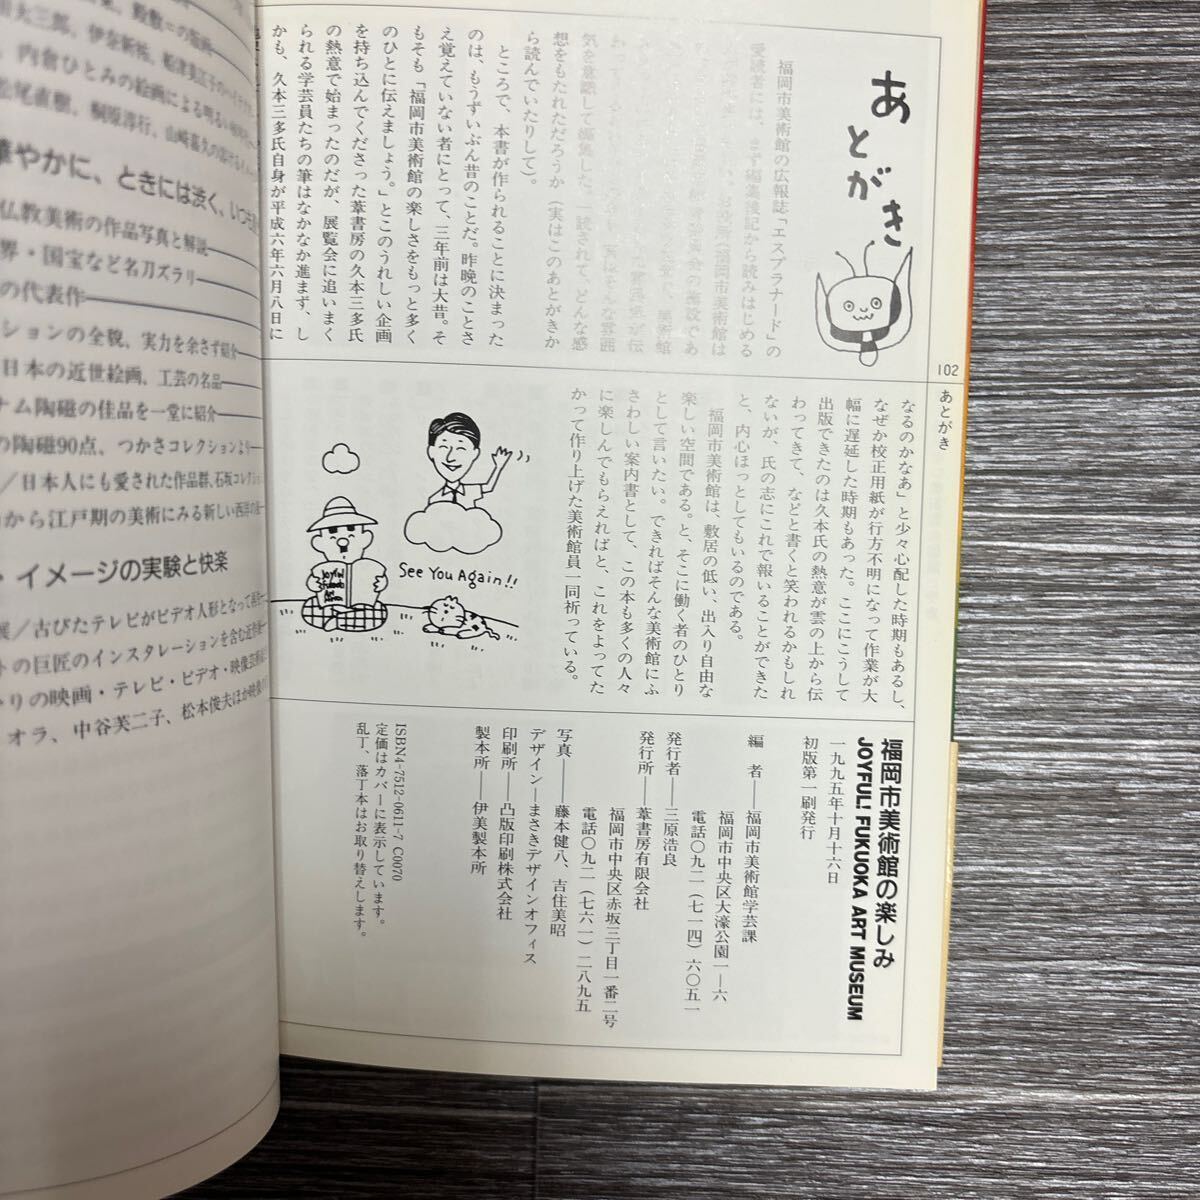 あとがき
福岡市美術館の広報誌「エスプラナード」の
愛読者には、まず編集後記から読みはじめる
気を意識して編集した。一読されて、どんな感
想をもたれただろうか（実はこのあとがきか
ら読んでいたりして）。
ところで、本書が作られることに決まった
のは、もうずいぶん昔のことだ。昨晩のことさ
え覚えていない者にとって、三年前は大昔。そ
もそも「福岡市美術館の楽しさをもっと多く
のひとに伝えましょう。」とこのうれしい企画
を持ち込んでくださった葦書房の久本三多氏
の熱意で始まったのだが、展覧会に追いまく
られる学芸員たちの筆はなかなか進まず、し
かも、久本三多氏自身が平成六年六月八日に
102
あとがき
なるのかなあ」と少々心配した時期もあるし、
なぜか校正用紙が行方不明になって作業が大
幅に遅延した時期もあった。ここにこうして
出版できたのは久本氏の熱意が雲の上から伝
わってきて、などと書くと笑われるかもしれ
ないが、氏の志にこれで報いることができた
と、内心ほっとしてもいるのである。
福岡市美術館は、敷居の低い、出入り自由な
楽しい空間である。と、そこに働く者のひとり
として言いたい。できればそんな美術館にふ
さわしい案内書として、この本も多くの人々
に楽しんでもらえればと、これをよってた
かって作り上げた美術館員一同祈っている。
See You Again!!
福岡市美術館の楽しみ
JOYFUL! FUKUOKA ART MUSEUM
一九九五年十月十六日
初版第一刷発行
編　者――福岡市美術館学芸課
福岡市中央区大濠公園一―六
電話〇九二（七一四）六〇五一
発行者――三原浩良
発行所――葦書房有限会社
福岡市中央区赤坂三丁目一番二号
電話〇九二（七六一）二八九五
写真――藤本健八、吉住美昭
デザイン――まさきデザインオフィス
印刷所――凸版印刷株式会社
製本所――伊美製本所
ISBN4-7512-0611-7 C0070
定価はカバーに表示しています。
乱丁、落丁本はお取り替えします。
内倉ひとみの絵画による明るい
松尾直樹、桐原淳行、山崎喜久の
華やかに、ときには渋く、いつも
仏教美術の作品写真と解説
界・国宝など名刀ズラリ
の代表作
ションの全貌、実力を余さず紹介
日本の近世絵画、工芸の名品
ナム陶磁の佳品を一堂に紹介
の陶磁90点、つかさコレクションより
／日本人にも愛された作品群、石坂コレクション
から江戸期の美術にみる新しい西洋の
・イメージの実験と快楽
展／古びたテレビがビデオ人形となって
トの巨匠のインスタレーションを含む近作
りの映画・テレビ・ビデオ・映像芸術
オラ、中谷芙二子、松本俊夫ほか映像の